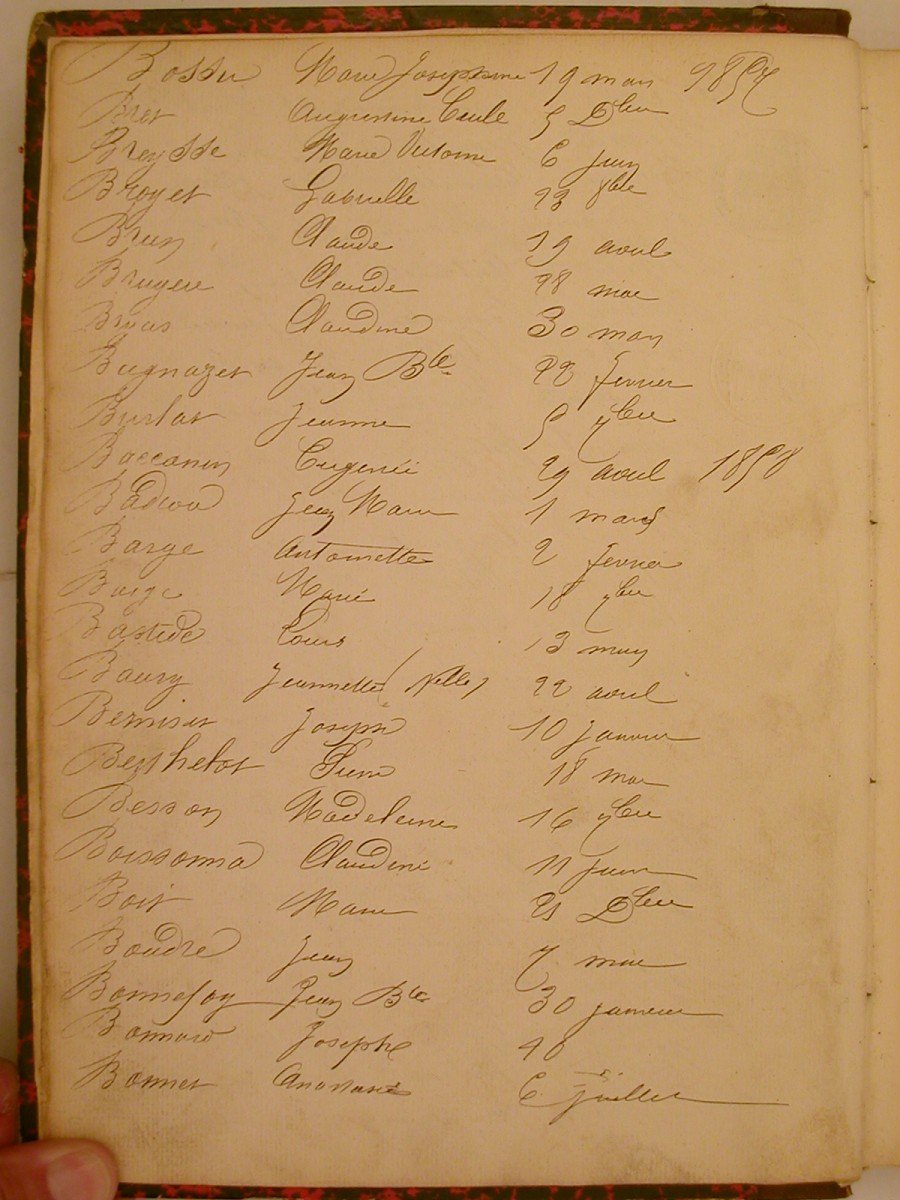 Bossu Marie Josephine 19 mars 1857
Bret Augustine Cecile 5 Dbre
Breysse Marie Victorine 6 juin
Broyet Gabrielle 23 8bre
Brun Claude 19 avril
Bruyere Claude 28 mai
Bryas Claudine 30 mars
Bugnazet Jean Bte 22 fevrier
Burlat Jeanne 5 9bre
Baccanin Eugenie 29 avril 1858
Badiou Jean Marie 1 mars
Barge Antoinette 2 fevrier
Barge Marie 18 9bre
Bastide Louis 13 mars
Baury Jeannette 22 avril
Joseph 10 janvier
Berthelot Pierre 18 mai
Besson Madeleine 16 9bre
Boissonna Claudine 11 juin
Boit Marie 21 Dbre
Boudre Jean 7 mai
Bonnefoy Jean Bte 30 janvier
Bonnard Joseph
Bonnet 6 juillet